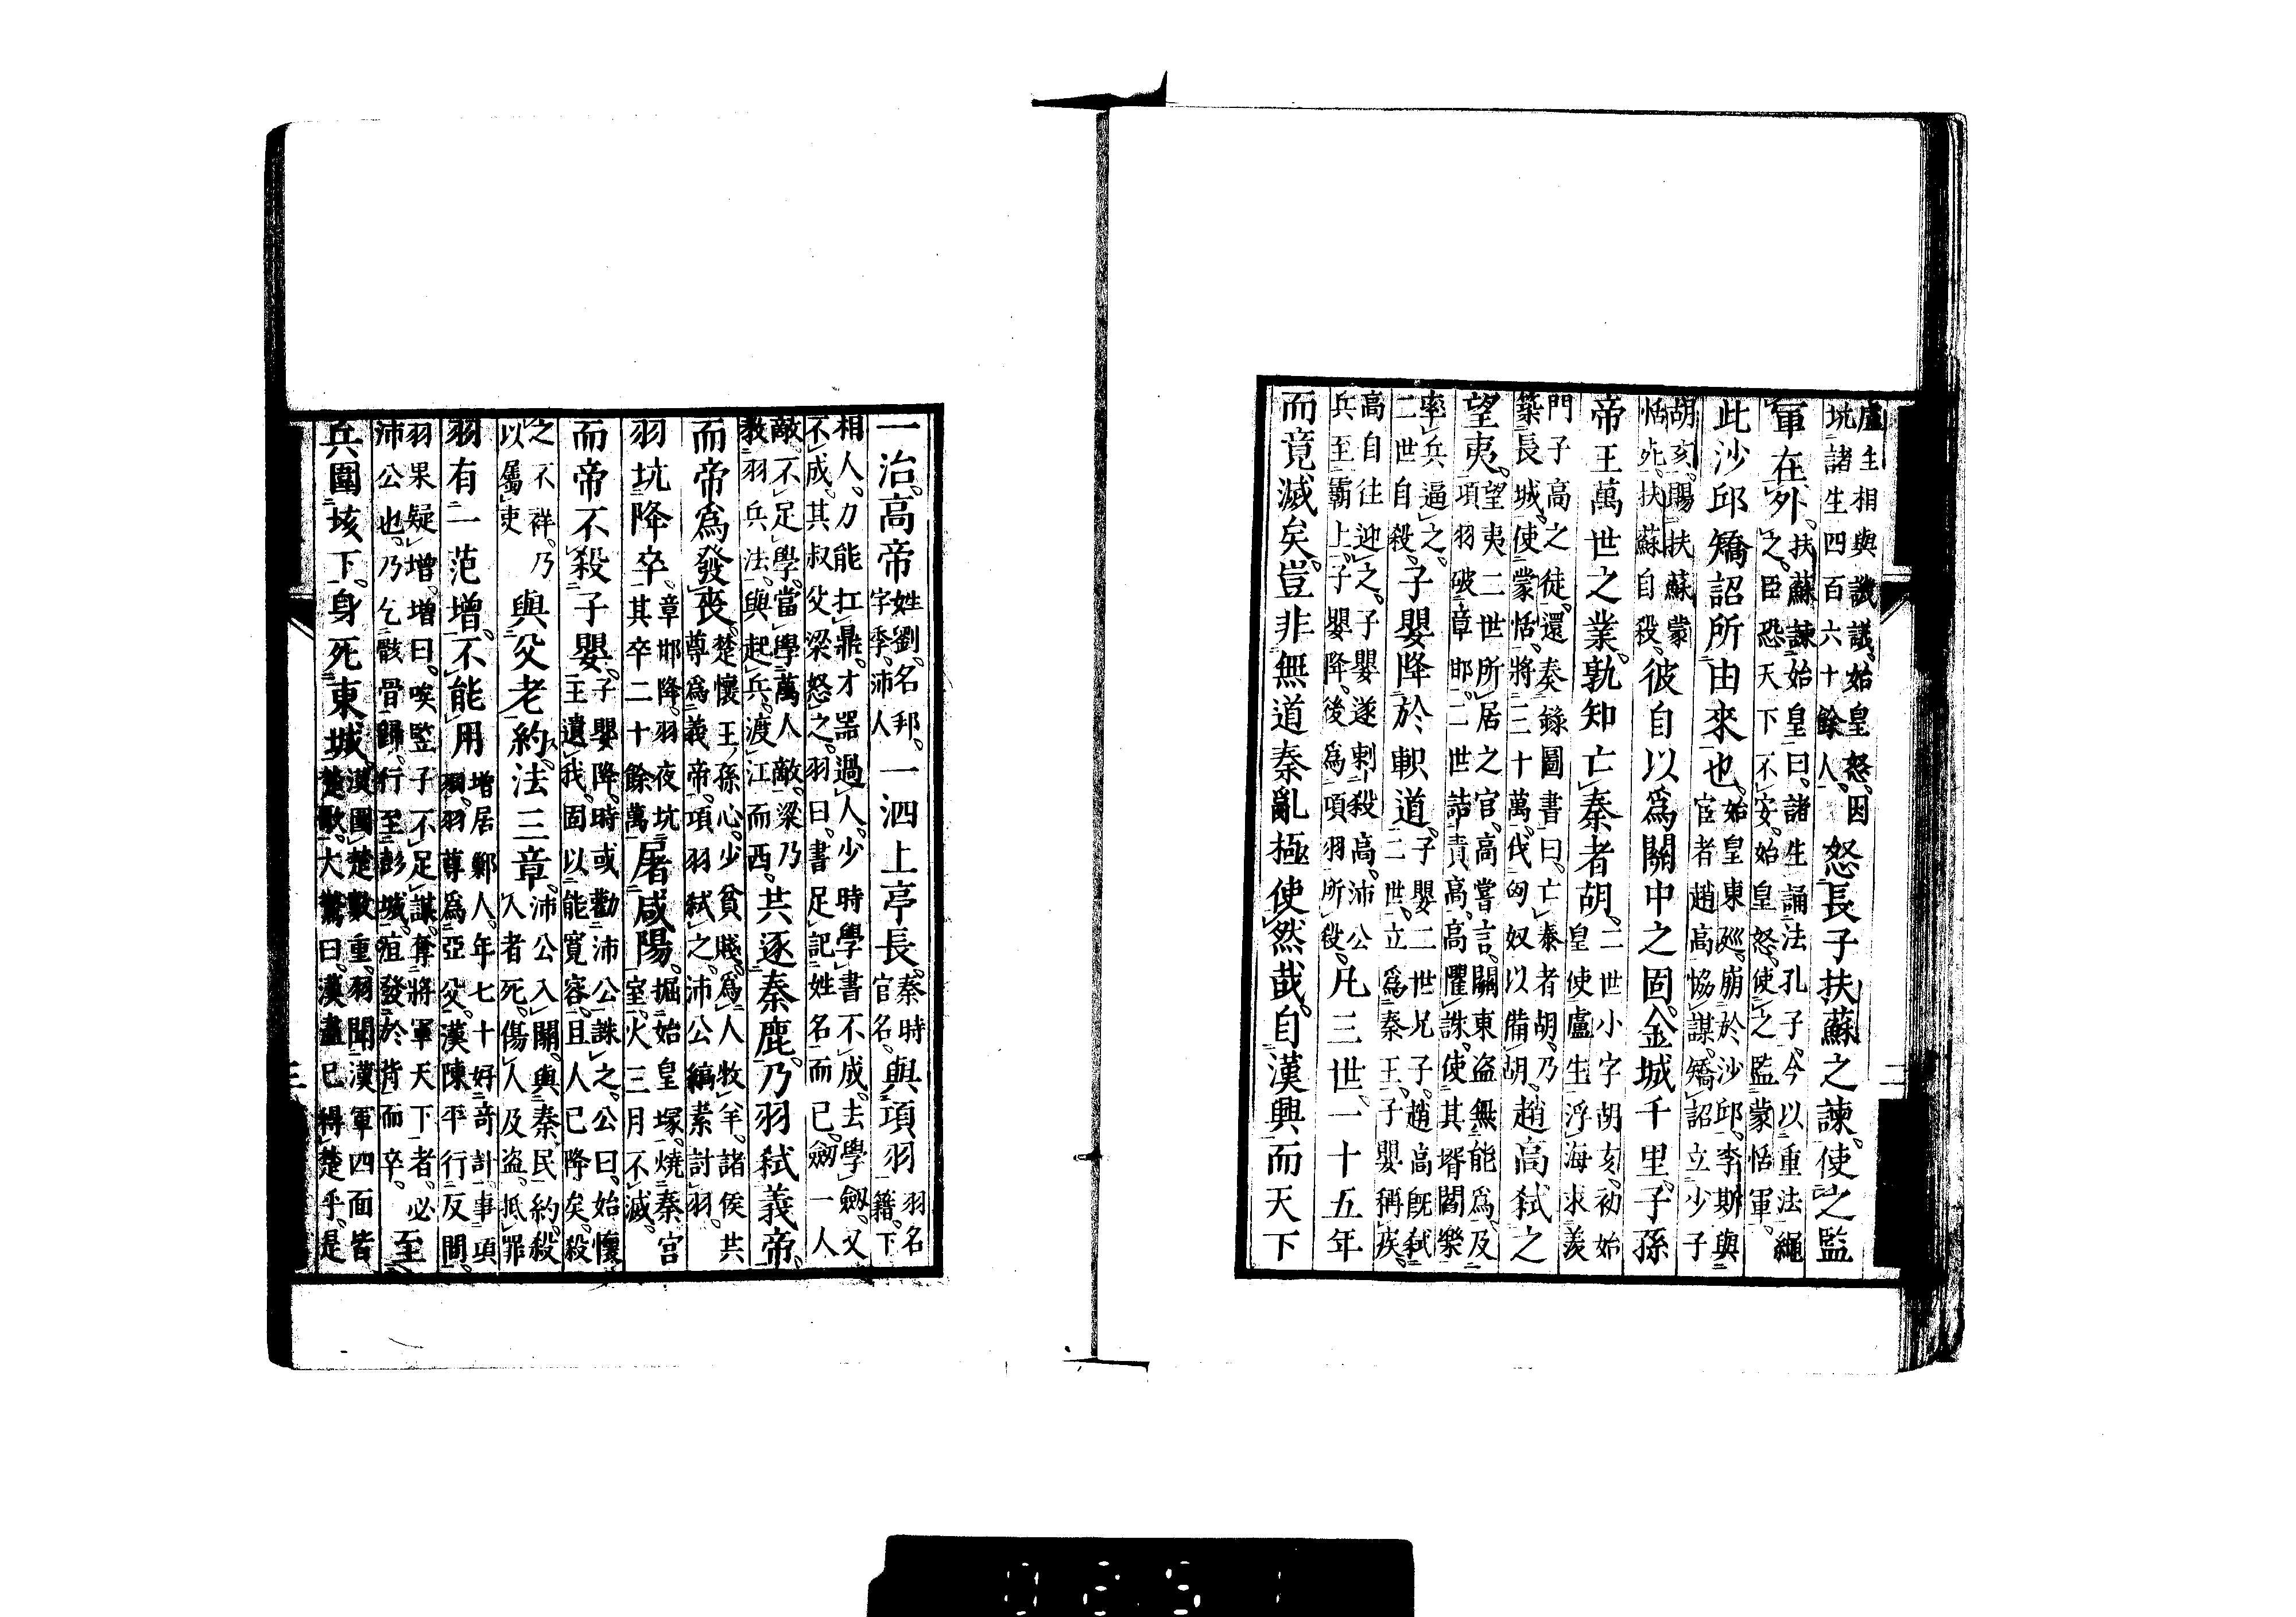 盧生相與譏議。始皇怒。因
坑諸生四百六十餘人。
怒長子扶蘇之諫。使之監
軍在外。
扶蘇諫始皇曰。諸生誦法孔子。今以重法繩
之。臣恐天下不安。始皇怒。使之監蒙恬軍。
此沙邱矯詔所由來也。
始皇東廵。崩於沙邱。李斯與
宦者趙高協謀。矯詔立少子
胡亥。賜扶蘇蒙
恬死。扶蘇自殺。
彼自以爲關中之固。金城千里。子孫
帝王萬世之業。孰知亡秦者胡。
二世小字胡亥。初始
皇使盧生浮海求羨
門子高之徒。還奏錄圖書曰。亡秦者胡。乃
築長城。使蒙恬將三十萬。伐匈奴以備胡。
趙高弒之
望夷。
望夷二世所居之官。高嘗言。關東盗無能爲。及
項羽破章邯。二世詰責高。高懼誅。使其壻閻樂
率兵逼之。
二世自殺。
子嬰降於軹道。
子嬰二世兄子。趙高旣弒
二世。立爲秦王。子嬰稱疾。
高自往迎之。子嬰遂刺殺高。沛公
兵至霸上。子嬰降。後爲項羽所殺。
凡三世。一十五年
而竟滅矣。豈非無道秦亂極使然哉。自漢興而天下
一治。高帝
姓劉。名邦。
字季。沛人
一泗上亭長。
秦時
官名。
與項羽
羽名
籍。下
相人。力能扛鼎。才器過人。少時學書不成。去學劒。又
不成。其叔父梁怒之。羽曰。書足記姓名而已。劒一人
敵。不足學。當學萬人敵。梁乃
教羽兵法。與起兵。渡江而西。
共逐秦鹿。乃羽弒義帝。
而帝爲發喪。
楚懷王孫心。少貧賤。爲人牧羊。諸侯共
尊爲義帝。項羽弒之。沛公縞素討羽。
羽坑降卒。
章邯降。羽夜坑
其卒二十餘萬
屠咸陽。
掘始皇塚。燒秦宮
室。火三月不滅。
而帝不殺子嬰。
子嬰降。時或勸沛公誅之。公曰。始懷
王遺我。固以能寛容。且人已降矣。殺
之不祥。乃
以屬吏
與父老約法三章。
沛公入關。與秦民約。殺
人者死。傷人及盗。抵罪
羽有一范增。不能用
增居鄛人。年七十好奇計。事項
羽。羽尊爲亞父。漢陳平行反間。
羽果疑增。增曰。唉豎子不足謀。奪將軍天下者。必
沛公也。乃乞骸骨歸。行至彭城。疽發於背而卒。
至
兵圍垓下。身死東城。
漢圍楚數重。羽聞漢軍四面皆
楚歌。大驚曰。漢盡已得楚乎。是
二
三